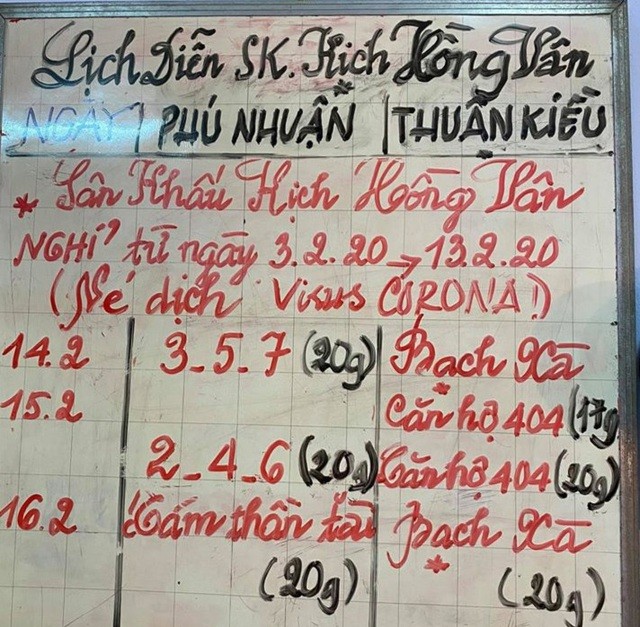 Lịch Diễn SK. Kịch Hồng Vân
NGÀY | PHÚ NHUẬN | THUẬN KIỀU
* Sân Khấu Kịch Hồng Vân
NGHỈ từ ngày 3.2.20 → 13.2.20
(Né dịch Virus CORONA!)
14.2 3-5-7 (20g) Bạch Xà
15.2 Căn hộ 404 (17g
2-4-6 (20g) Căn hộ 404 (20g)
16.2 Cám thần tài Bạch Xà
(20g) (20g)